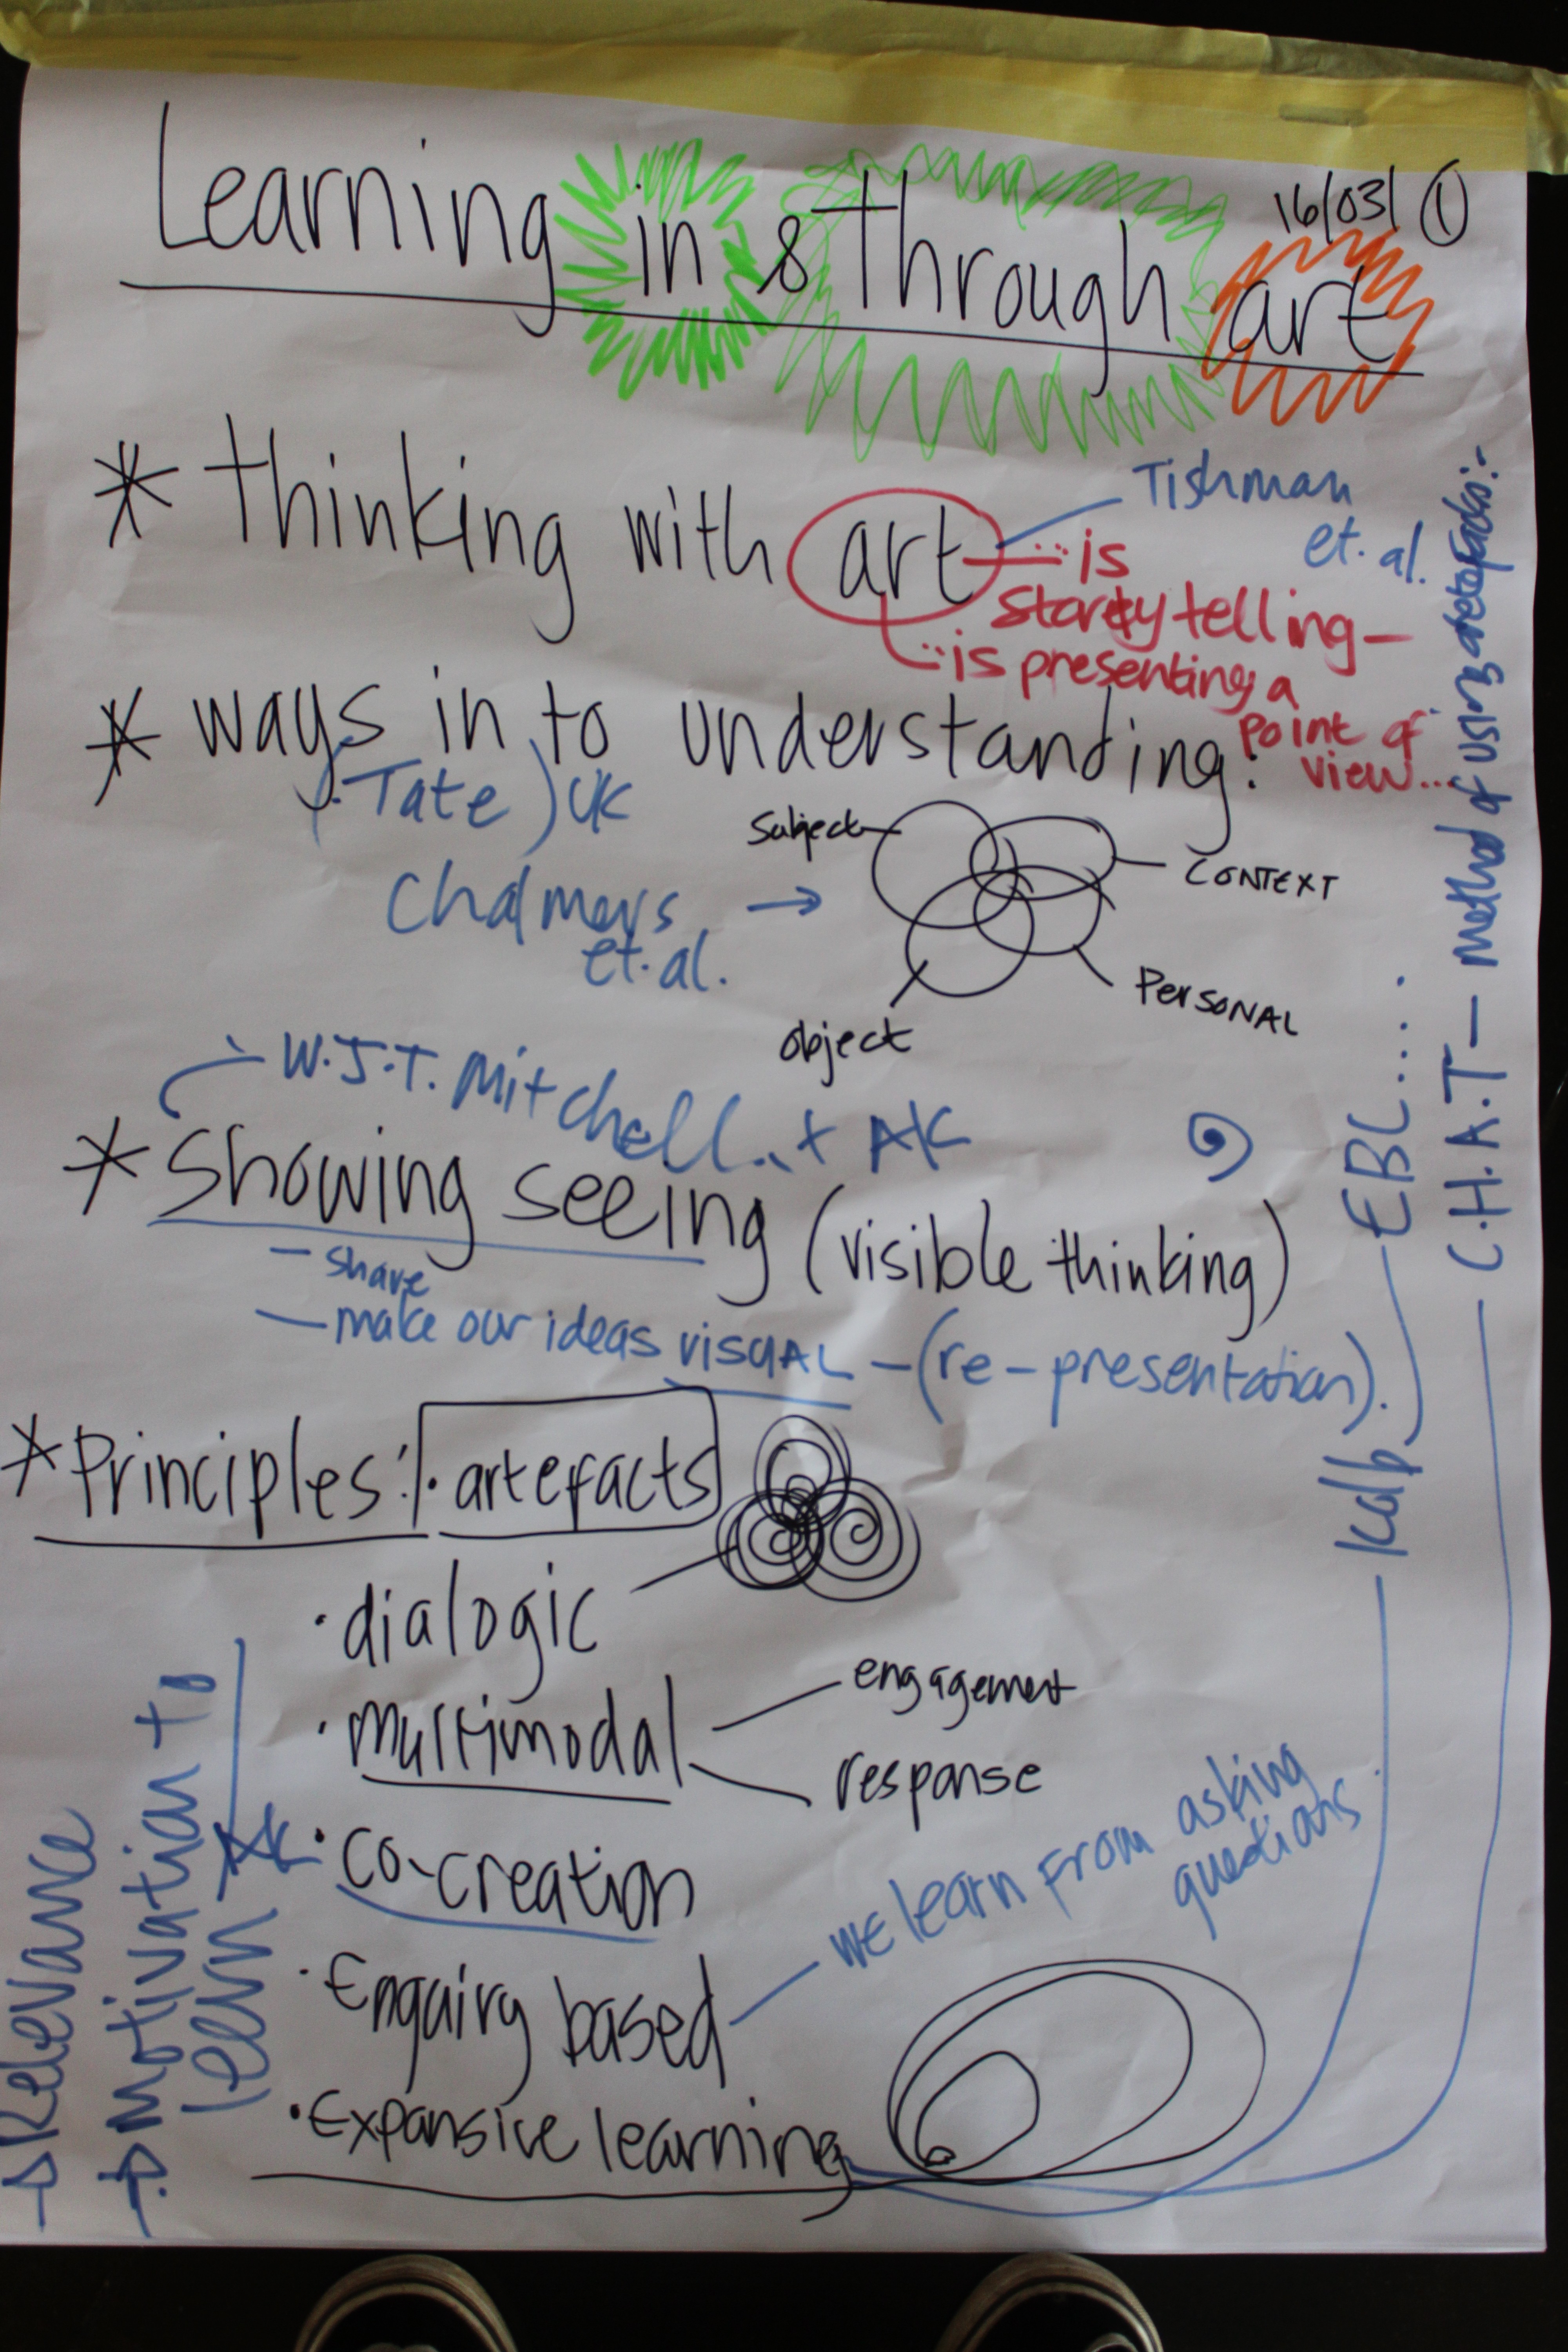 16/03/ ①
Learning in & through art
* thinking with art
Tishman
et. al.
...is
storytelling –
...is presenting a
point of
view...
* ways in to understanding:
(Tate) UK
Chalmers
et. al. →
Subject
CONTEXT
PERSONAL
object
W.J.T. Mitchell.. + AK
* Showing seeing (visible thinking)
– share
– make our ideas VISUAL – (re-presentation).
* Principles: · artefacts
· dialogic
· multimodal
engagement
response
· co-creation
· Enquiry based
we learn from asking
questions
· Expansive learning
→ Relevance
→ motivation to
learn
AK
Kolb
EBL....
C.H.A.T – method of using artefacts:-